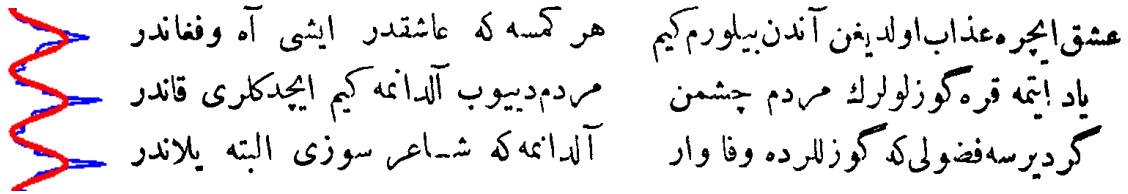 عشق ایچره عذاب اولدیغن آندن بیلورم کیم هر کمسه که عاشقدر ایشی آه وفغاندر
یاد ایتمه قره گوزلولرك مردم چشمن مردم دییوب آلدانمه کیم ایچدکلری قاندر
گر دیرسه فضولی که گوزللرده وفا وار آلدانمه که شاعر سوزی البته یلاندر